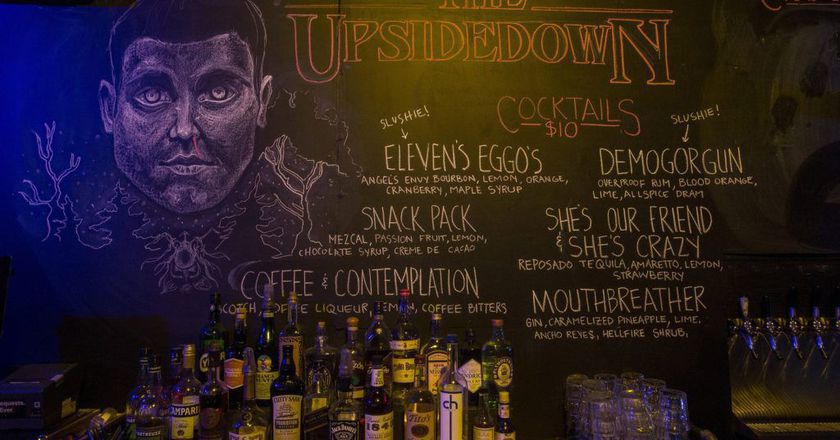 THE
UPSIDEDOWN
COCKTAILS
$10
SLUSHIE!
ELEVEN'S EGGO'S
ANGELS ENVY BOURBON, LEMON, ORANGE,
CRANBERRY, MAPLE SYRUP
SNACK PACK
MEZCAL, PASSION FRUIT, LEMON,
CHOCOLATE SYRUP, CREME DE CACAO
COFFEE & CONTEMPLATION
SCOTCH, COFFEE LIQUEUR, LEMON, COFFEE BITTERS
SLUSHIE!
DEMOGORGUN
OVERPROOF RUM, BLOOD ORANGE,
LIME, ALLSPICE DRAM
SHE'S OUR FRIEND
& SHE'S CRAZY
REPOSADO TEQUILA, AMARETTO, LEMON,
STRAWBERRY
MOUTHBREATHER
GIN, CARAMELIZED PINEAPPLE, LIME,
ANCHO REYES, HELLFIRE SHRUB,
CAMPARI
CUTTY SARK
JACK DANIEL'S
Tito's
ch